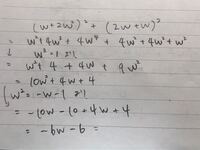 (w+2w²)² + (2w+w)²
= w²+4w³+4w⁴ + 4w²+4w³+w²
↓ w³=1 より
= w²+4+4w+9w²
= 10w²+4w+4
w²=-w-1 より
= -10w-10+4w+4
= -6w-6 =